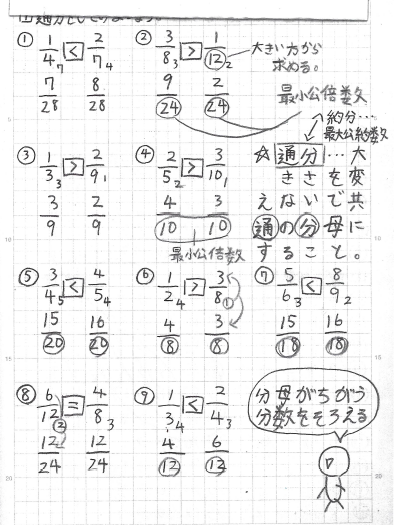 ① 1/4 7 < 2/7 4
7/28 8/28
② 3/8 3 > 1/12 2
9/24 2/24
大きい方から
求める。
最小公倍数
約分…
最大公約数
③ 1/3 3 > 2/9 1
3/9 2/9
④ 2/5 2 > 3/10 1
4/10 3/10
最小公倍数
☆通分…大
きさを変
えないで共
通の分母に
すること。
⑤ 3/4 5 < 4/5 4
15/20 16/20
⑥ 1/2 4 > 3/8 ①
4/8 3/8
⑦ 5/6 3 < 8/9 2
15/18 16/18
⑧ 6/12 ② = 4/8 3
12/24 12/24
⑨ 1/3 4 < 2/4 3
4/12 6/12
分母がちがう
分数をそろえる